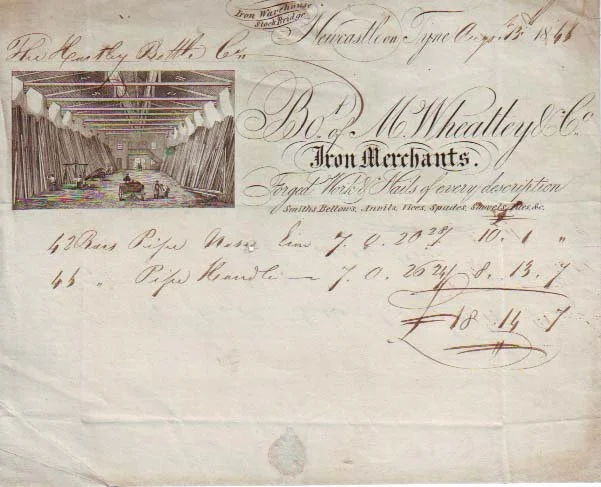 Iron Warehouse
Stock Bridge
Newcastle on Tyne Augt. 13 1846
The Hartley Bottle Co.
Bot. of M. Wheatley & Co.
Iron Merchants.
Forged Work & Nails of every description
Smiths Bellows, Anvils, Vices, Spades, Shovels, Files, &c.
43 Bars Pipe Nose Iron 7. 2. 20 28/ 10. 1 "
45 " Pipe Handle — 7. 0. 26 24/ 8. 13. 7
£ 18. 14. 7